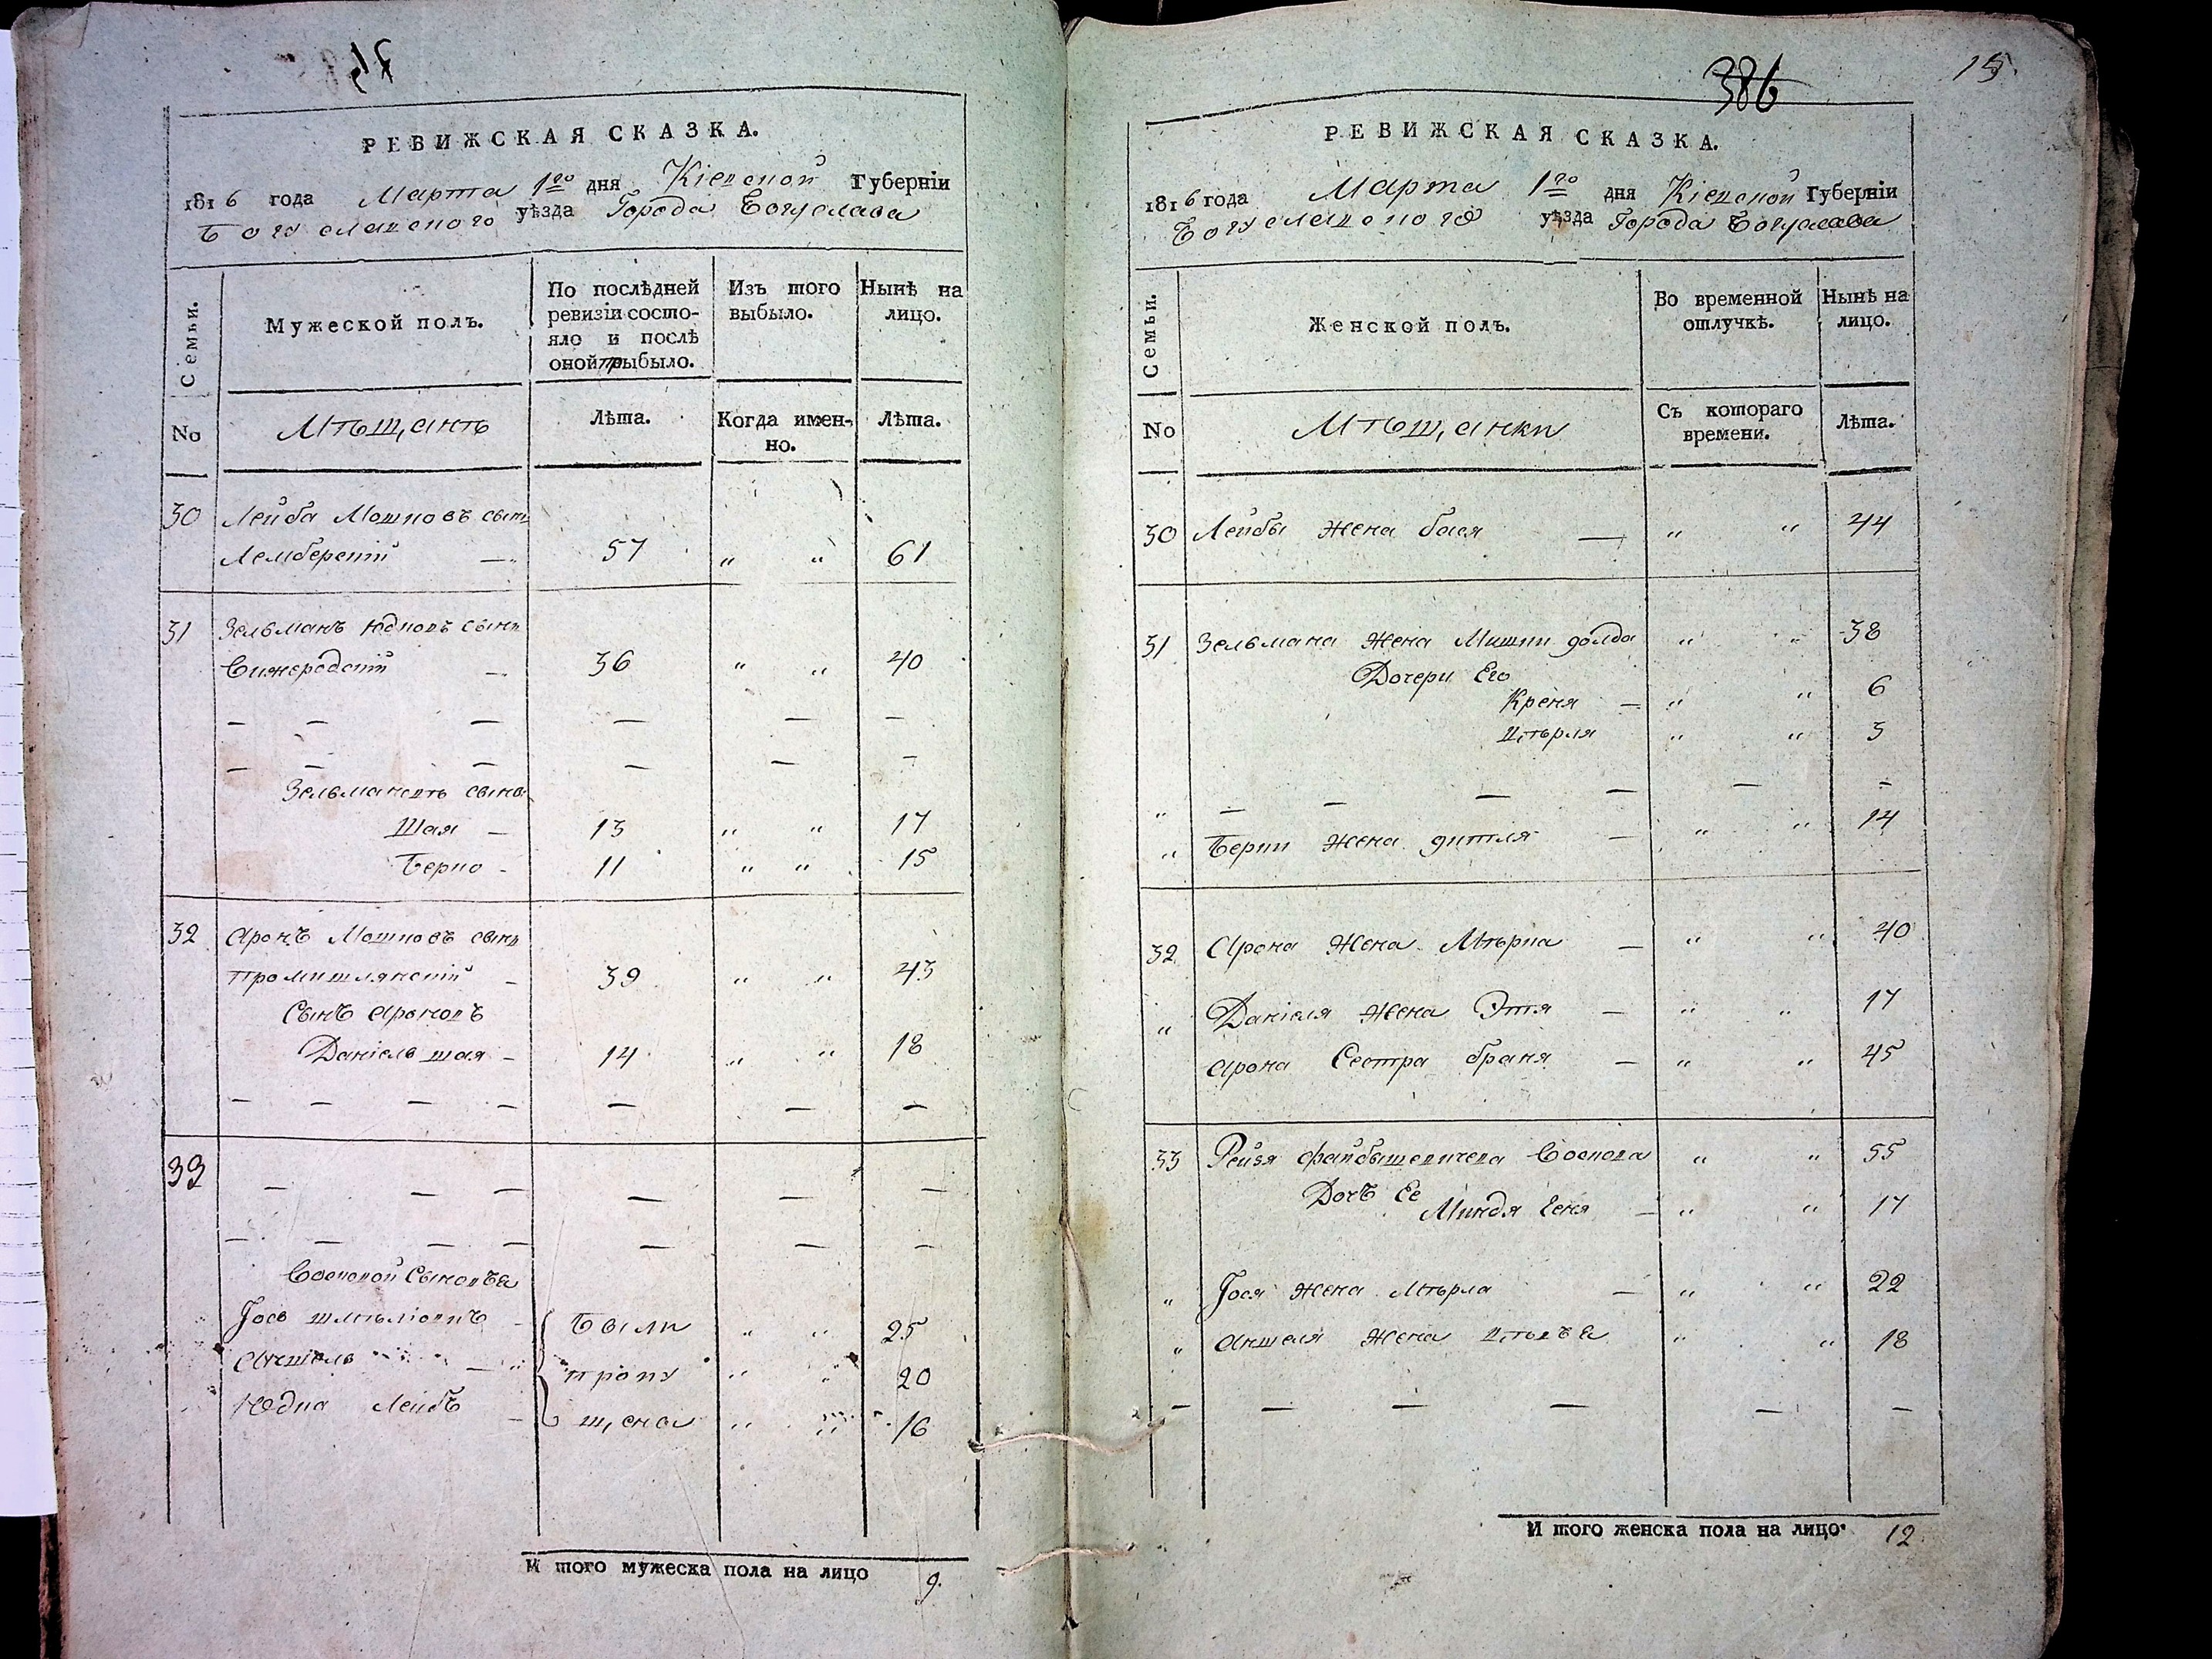 РЕВИЖСКАЯ СКАЗКА.
1816 года Марта 1го дня Кіевской Губерніи
Богуславского уѣзда Города Богуслава
Семьи.
Мужеской полъ.
По послѣдней ревизіи состояло и послѣ оной прыбыло.
Изъ того выбыло.
Нынѣ на лицо.
No
Мѣщанѣ
Лѣта.
Когда именно.
Лѣта.
30 Лейба Мошковъ сынъ
Лемберскій — 57 " " 61
31 Зельманъ Юдковъ сынъ
36 " " 40
— — — — — —
— — — — — —
Зельмановъ сыновья
Шая — 13 " " 17
Берко - 11 " " 15
32 Аронъ Мошковъ сынъ
Промишлянскій - 39 " " 43
Сынъ Ароновъ
Даніель шая - 14 " " 18
— — — — — — —
33 — — — — — —
— — — — — — —
Сосновой Сыновья
Іось Шмѣліовичъ - Были " " 25
Аншель — " пропу " " 20
Юдка Лейбъ - щена " " 16
И того мужеска пола на лицо 9.
386
15.
РЕВИЖСКАЯ СКАЗКА.
1816 года Марта 1го дня Кіевской Губерніи
Богуславского уѣзда Города Богуслава
Семьи.
Женской полъ.
Во временной отлучкѣ.
Нынѣ на лицо.
No
Мѣщанки
Съ котораго времени.
Лѣта.
30 Лейбы жена бася — " " 44
31 Зельмана жена голда " " 38
Дочери Его
Креня — " " 6
Цѣрля " " 3
" — — — — — -
" Берки жена гитля — " " 14
32 Арона жена Мѣрка — " " 40
" Даніеля жена Этя — " " 17
Арона Сестра браня — " " 45
33 Рейзя Файбышевичева Соснова " " 55
Дочь Ее
Миндя Геня — " " 17
" Іося жена Мѣрла — " " 22
" Аншеля жена " " 18
— — — — — —
И того женска пола на лицо. 12